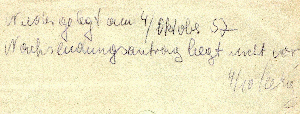 Niedergelegt am 4/Oktober 57
Nachsendungsantrag liegt nicht vor